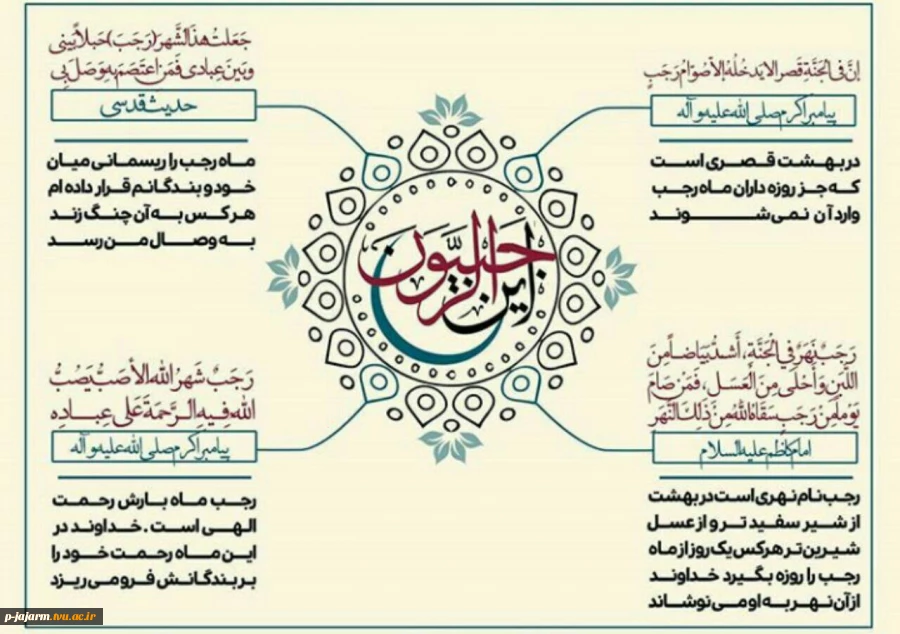 إنَّ فی الجَنَّةِ قَصرا لا یَدخُلُهُ إلاّ صُوّامُ رَجَبٍ
پیامبر اکرم صلی الله علیه و آله
در بهشت قصری است
که جز روزه داران ماه رجب
وارد آن نمی شوند
جَعَلتُ هذَا الشَّهرَ (رَجَبَ) حَبلاً بَینی
وبَینَ عِبادی فَمَنِ اعتَصَمَ بِهِ وَصَلَ بی
حدیث قدسی
ماه رجب را ریسمانی میان
خود و بندگانم قرار داده ام
هر کس به آن چنگ زند
به وصال من رسد
این الرجبیّون
رَجَبٌ نَهَرٌ فی الجَنَّةِ، أشَدُّ بَیاضا مِنَ
اللَّبَنِ وَ أحْلى مِنَ الْعَسَلِ، فَمَنْ صامَ
یَوْما مِنْ رَجَبٍ سَقاهُ اللّهُ مِنْ ذلِکَ النَّهَرِ
امام کاظم علیه السلام
رجب نام نهری است در بهشت
از شیر سفید تر و از عسل
شیرین تر هر کس یک روز از ماه
رجب را روزه بگیرد خداوند
از آن نهر به او می نوشاند
رَجَبٌ شَهرُ اللّه الأصَبُّ یَصُبُّ
اللّه فیهِ الرَّحمَةَ عَلی عِبادِه
پیامبر اکرم صلی الله علیه و آله
رجب ماه بارش رحمت
الهی است . خداوند در
این ماه رحمت خود را
بر بندگانش فرو می ریزد
p-jajarm.tvu.ac.ir